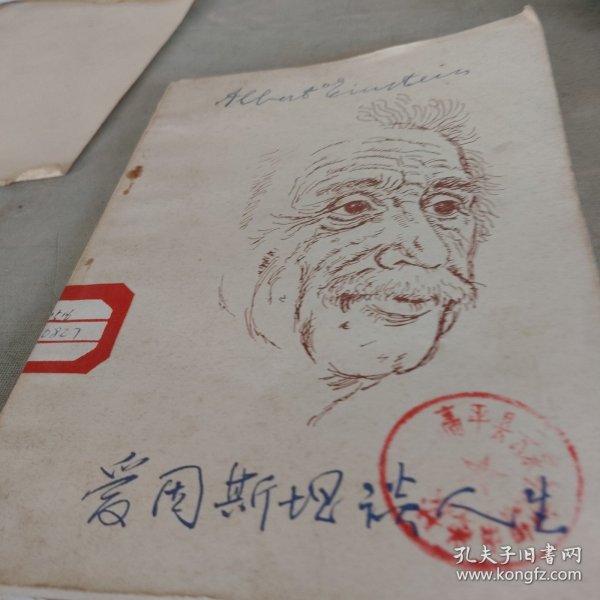 Albert Einstein
0827
高平县
爱因斯坦谈人生
孔夫子旧书网
www.kongfz.com